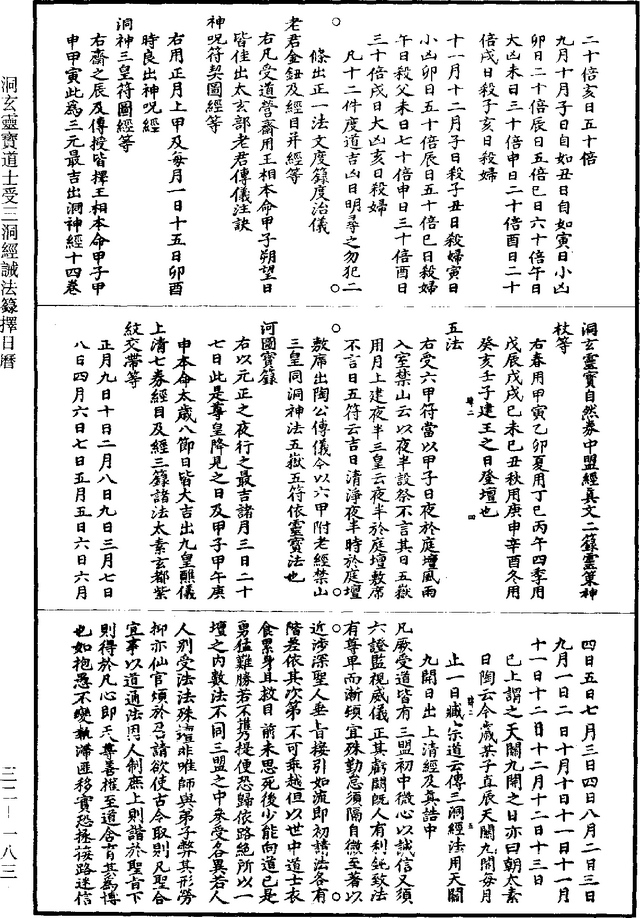 洞玄靈寶道士受三洞經誡法籙擇日曆
三二—一八三
二十倍亥日五十倍
九月十月子日自如丑日自如寅日小凶
卯日二十倍辰日五倍巳日六十倍午日
大凶未日三十倍申日二十倍酉日二十
倍戌日殺子亥日殺婦
十一月十二月子日殺子丑日殺婦寅日
小凶卯日五十倍辰日五十倍巳日殺婦
午日殺父未日七十倍申日三十倍酉日
三十倍戌日大凶亥日殺婦
凡十二件度道吉凶日明尋之勿犯二
條出正一法文度籙度治儀
老君金鈕及經目并經等
右凡受道營齋用王相本命甲子朔望日
皆佳出太玄部老君傳儀注訣
神呪符契圖經等
右用正月上甲及每月一日十五日卯酉
時良出神呪經
洞神三皇符圖經等
右齋之辰及傳授皆擇王相本命甲子甲
申甲寅此爲三元最吉出洞神經十四卷
洞玄靈寶自然券中盟經真文二籙靈策神
杖等
右春用甲寅乙卯夏用丁巳丙午四季用
戊辰戊戌己未己丑秋用庚申辛酉冬用
癸亥壬子建王之日登壇也
五法
右受六甲符當以甲子日夜於庭壇風雨
入室禁山云以夜半設祭不言其日五嶽
用月上建夜半三皇云夜半於庭壇敷席
不言日五符云吉日清淨夜半時於庭壇
敷席出陶公傳儀今以六甲附老經禁山
三皇同洞神法五嶽五符依靈寶法也
河圖寶籙
右以元正之夜行之最吉諸月三日二十
七日此是尊皇降見之日及甲子甲午庚
申本命太歲八節日皆大吉出九皇醮儀
上清七券經目及經三籙諸法太素玄都紫
紋交帶等
正月九日十日二月八日九日三月七日
八日四月六日七日五月五日六日六月
四日五日七月三日四日八月二日三日
九月一日二日十月十日十一日十一月
十一日十二日十二月十二日十三日
已上謂之天關九開之日亦曰朝太素
日陶云今歲某子直辰天關九開每月
止一日臧宗道云傳三洞經法用天關
九開日出上清經及真誥中
凡厥受道皆有三盟初中微心以誠信又須
六證監視威儀正其虧闕既人有利鈍致法
有尊卑而漸頓宜殊勤怠須隔自微至著以
近渉深聖人垂旨接引如流即初諸法各有
階差依其次第不可乖越但以世中道士衣
食累身且救目前未思死後少能向道已是
勇猛難勝若不攜提便恐歸依路絕所以一
壇之内數法不同三盟之中來受各異若人
人別受法法殊壇非唯師與弟子弊其形勞
抑亦仙官煩於召請欲使古今取則凡聖合
宜事以道通法因人制庶上則諧於聖旨下
則得於凡心即天尊善權至道含育其爲博
也如抱愚不變執滯匪移實恐拯接路迷信